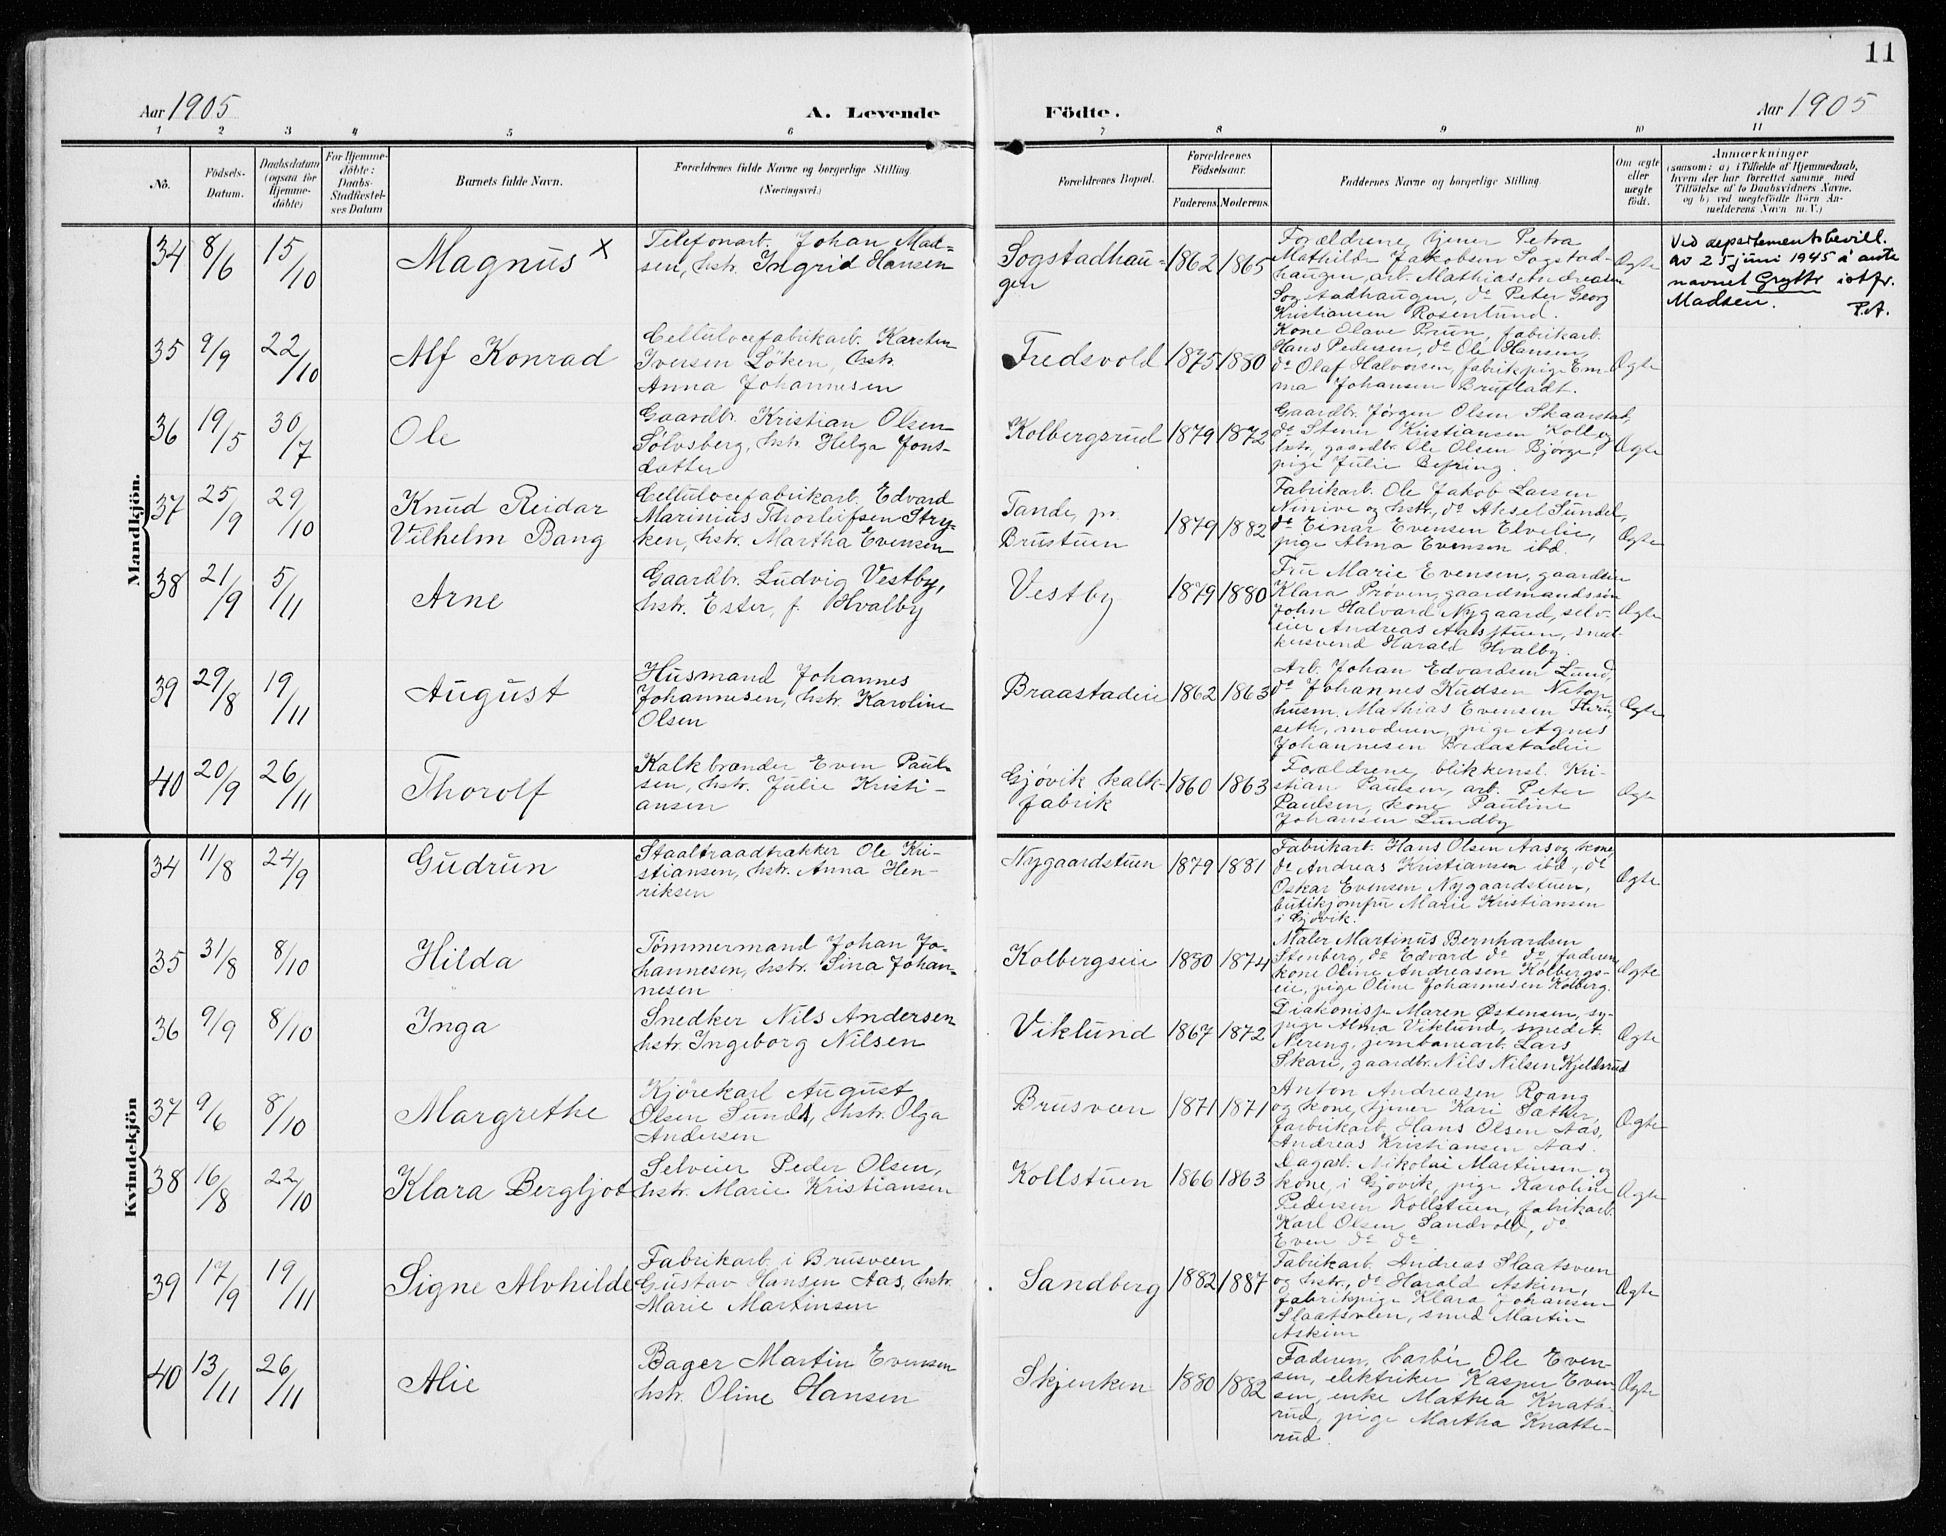 11
Aar 1905
A. Levende
Födte.
Aar 1905
1 2 3 4 5 6 7 8 9 10 11
No.
Födsels-
Datum.
Daabsdatum
(ogsaa for
Hjemme-
döbte)
For Hjemme-
döbte:
Daabs-
Stadfæstel-
ses Datum
Barnets fulde Navn.
Forældrenes fulde Navne og borgerlige Stilling.
(Næringsvei.)
Forældrenes Bopæl.
Forældrenes
Födselsaar.
Faderens. Moderens.
Faddernes Navne og borgerlige Stilling.
Om ægte
eller
uægte
födt.
Anmærkninger
(saasom: a) i Tilfælde af Hjemmedaab,
hvem der har forrettet samme med
Tilföielse af to Daabsvidners Navne.
og b) ved uægtefödte Börn An-
melderens Navn m. V.)
Mandkjön.
34 8/6 15/10 Magnus x
Telefonarb. Johan Mad-
sen, hstr. Ingrid Hansen
Sogstadhau-
gen
1862 1865
Forældrene, tjener Petra
Mathilde Jakobsen Sogstad-
haugen, arb. Mathias Andreasen
Sogstadhaugen, do Peter Georg
Kristiansen Rosenlund.
Ægte
Ved departementsbevill.
av 25 juni 1945 å anta
navnet Grytte istfr.
Madsen. P.A.
35 9/9 22/10 Alf Konrad
Cellulosefabrikarb. Karsten
Iversen Löken, hstr.
Anna Johannesen
Fredsvold
1875 1880
Kone Olave Prun, fabrikarb.
Hans Pedersen, do Ole Hansen,
do Olaf Halvorsen, fabrikpige Em-
ma Johansen Brufladt.
Ægte
36 19/5 30/7 Ole
Gaardbr. Kristian Olsen
Sölvsberg, hstr. Helga Jons-
datter
Kolbergsrud
1879 1872
Gaardbr. Jørgen Olsen Skaarstad,
do Stener Kristiansen Koll og
hstr, gaardbr. Ole Olsen Bjørge,
pige Julie Befring.
Ægte
37 25/9 29/10 Knud Reidar
Vilhelm Bang
Cellulosefabrikarb. Edvard
Marinius Thorleifsen Stry-
ken, hstr. Martha Evensen
Tande, pr.
Brustuen
1879 1882
Fabrikarb. Ole Jakob Larsen
Ninive og hstr, do Aksel Sundel,
do Einar Evensen Elvelie,
pige Alma Evensen ibd.
Ægte
38 21/9 5/11 Arne
Gaardbr. Ludvig Vestby,
hstr. Ester, f. Hvalby
Vestby
1879 1880
Fru Marie Evensen, gaardeier
Klara Prøven, gaardmandssön
John Halvard Nygaard, selv-
eier Andreas Aasstuen, sned-
kersvend Harald Hvalby.
Ægte
39 29/8 19/11 August
Husmand Johannes
Johannesen, hstr. Karoline
Olsen
Braastadeie
1862 1863
Arb. Johan Edvardsen Lund,
do Johannes Kudsen Netop
husm. Mathias Evensen
seth, moderen, pige Agnes
Johannesen Braastadeie
Ægte
40 20/9 26/11 Thorolf
Kalkbrænder Even Paul-
sen, hstr. Julie Kristi-
ansen
Gjøvik kalk-
fabrik
1860 1863
Forældrene, blikkensl. Kri-
stian Paulsen, arb. Peter
Paulsen, kone Pauline
Johansen Lundby
Ægte
Kvindekjön
34 11/8 24/9 Gudrun
Staaltraadtrækker Ole Kri-
stiansen, hstr. Anna Hen-
riksen
Nygaardstuen
1879 1881
Fabrikarb. Hans Olsen Aas og kone,
do Andreas Kristiansen ibd, do
Oskar Evensen Nygaardstuen,
butikjomfru Marie Kristiansen
i Gjøvik.
Ægte
35 31/8 8/10 Hilda
Tømmermand Johan Jo-
hannesen, hstr. Sina Johan-
nesen
Kolbergseie
1880 1874
Maler Martinus Bernhardsen
Stenberg, do Edvard do do, faderen,
kone Oline Andreasen Kolbergs-
eie, pige Oline Johannesen Kolberg.
Ægte
36 9/9 8/10 Inga
Snedker Nils Andersen
hstr. Ingeborg Nilsen
Viklund
1867 1872
Diakonisse Maren Østensen, sy-
pige Alma Viklund, smed A.
Nereng, jernbanearb. Lars
Skare, gaardbr. Nils Nilsen Kjeldsrud
Ægte
37 9/6 8/10 Margrethe
Kjørekarl August
Olsen Sund, hstr. Olga
Andersen
Brusveen
1871 1871
Anton Andreasen Roang
og kone, tjener Kari Sæther,
farbrikarb. Hans Olsen Aas,
Andreas Kristiansen Aas.
Ægte
38 16/8 22/10 Klara Bergljot
Selveier Peder Olsen,
hstr. Marie Kristiansen
Kollstuen
1866 1863
Dagarb. Nikolai Martinsen og
kone, i Gjøvik, pige Karoline
Pedersen Kollstuen, fabrikarb.
Karl Olsen Sandvold, do
Even do do
Ægte
39 17/9 19/11 Signe Alvhilde
Fabrikarb. i Brusveen
Gustav Hansen Aas, hstr.
Marie Martinsen
Sandberg
1882 1887
Fabrikarb. Andreas Slaatsveen
og hstr, do Harald Askim,
fabrikpige Klara Johansen
Slaatsveen, smed Martin
Askim
Ægte
40 13/11 26/11 Alie
Bager Martin Evensen
hstr. Oline Hansen
Skjenken
1880 1882
Faderen, barbér Ole Even-
sen, elektriker Kasper Even-
sen, enke Mathea Knatte-
rud, pige Martha Knatte-
rud
Ægte